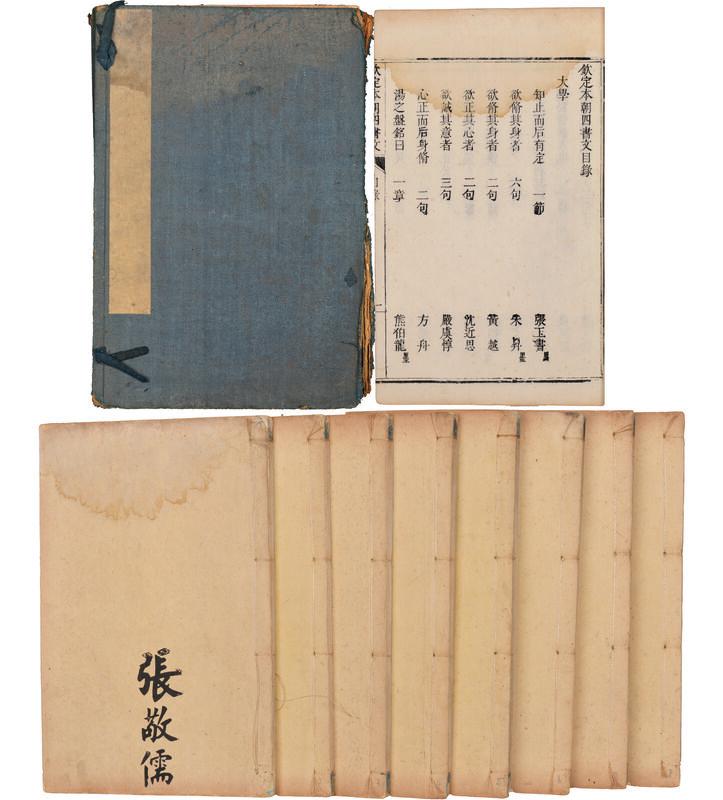 欽定本朝四書文目錄
大學
知止而后有定 一節 張玉書
欲脩其身者 六句 朱昇
欲脩其身者 二句 黃越
欲正其心者 二句 沈近思
欲誠其意者 三句 嚴虞惇
心正而后身脩 二句 方舟
湯之盤銘曰 一章 熊伯龍
欽定本朝四書文 目錄
張敬儒